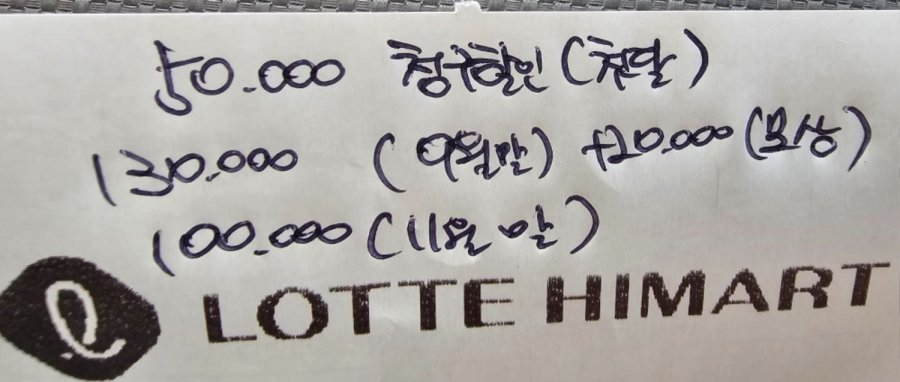 50.000 청구할인 (첫달)
130.000 (9월말) +20.000 (보상)
100.000 (11월 말)
LOTTE HIMART